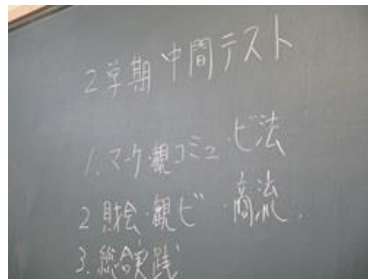 2学期中間テスト
1.マーケ・観コミュ・ビ法
2 財会・観ビ・商流.
3.総合実践